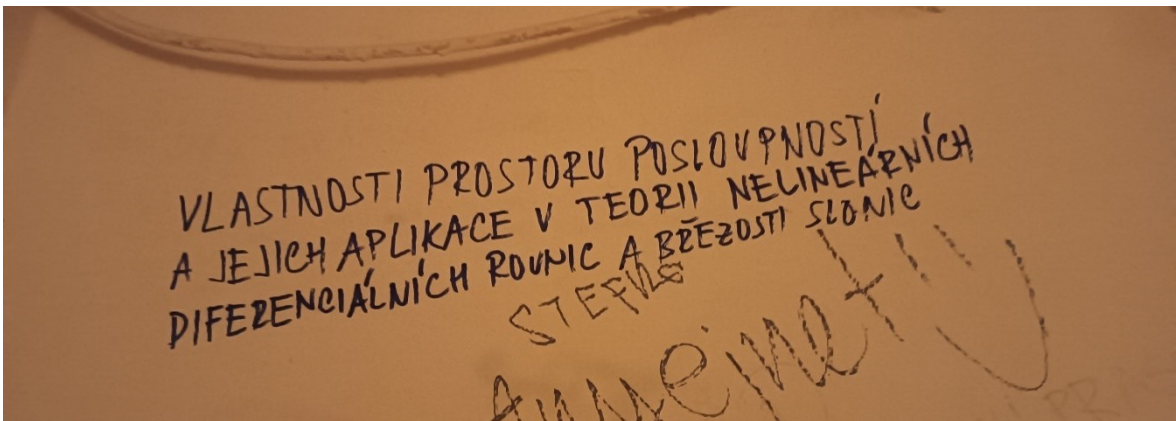 VLASTNOSTI PROSTORU POSLOUPNOSTÍ
A JEJICH APLIKACE V TEORII NELINEÁRNÍCH
DIFERENCIÁLNÍCH ROVNIC A BŘEZOSTI SLONIC